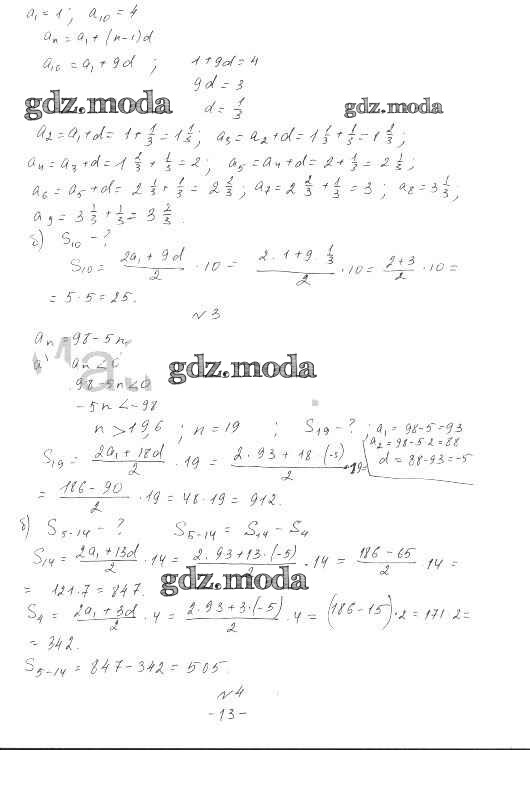 a₁ = 1 ; a₁₀ = 4
aₙ = a₁ + (n-1)d
a₁₀ = a₁ + 9d ; 1 + 9d = 4
9d = 3
gdz.moda d = 1/3 gdz.moda
a₂ = a₁ + d = 1 + 1/3 = 1 1/3 ; a₃ = a₂ + d = 1 1/3 + 1/3 = 1 2/3 ;
a₄ = a₃ + d = 1 2/3 + 1/3 = 2 ; a₅ = a₄ + d = 2 + 1/3 = 2 1/3 ;
a₆ = a₅ + d = 2 1/3 + 1/3 = 2 2/3 ; a₇ = 2 2/3 + 1/3 = 3 ; a₈ = 3 1/3 ;
a₉ = 3 1/3 + 1/3 = 3 2/3 .
б) S₁₀ - ?
S₁₀ = (2a₁ + 9d)/2 · 10 = (2·1 + 9 · 1/3)/2 · 10 = (2+3)/2 · 10 =
= 5 · 5 = 25.
№3
aₙ = 98 - 5n
а) aₙ < 0 gdz.moda
98 - 5n < 0
-5n < -98
n > 19,6 ; n = 19 ; S₁₉ - ? ; a₁ = 98-5 = 93
a₂ = 98-5·2 = 88
d = 88-93 = -5
S₁₉ = (2a₁ + 18d)/2 · 19 = (2·93 + 18·(-5))/2 · 19 =
= (186 - 90)/2 · 19 = 48 · 19 = 912.
б) S₅₋₁₄ - ? S₅₋₁₄ = S₁₄ - S₄
S₁₄ = (2a₁ + 13d)/2 · 14 = (2·93 + 13·(-5))/2 · 14 = (186 - 65)/2 · 14 =
= 121 · 7 = 847. gdz.moda
S₄ = (2a₁ + 3d)/2 · 4 = (2·93 + 3·(-5))/2 · 4 = (186 - 15) · 2 = 171 · 2 =
= 342.
S₅₋₁₄ = 847 - 342 = 505.
№4
-13-